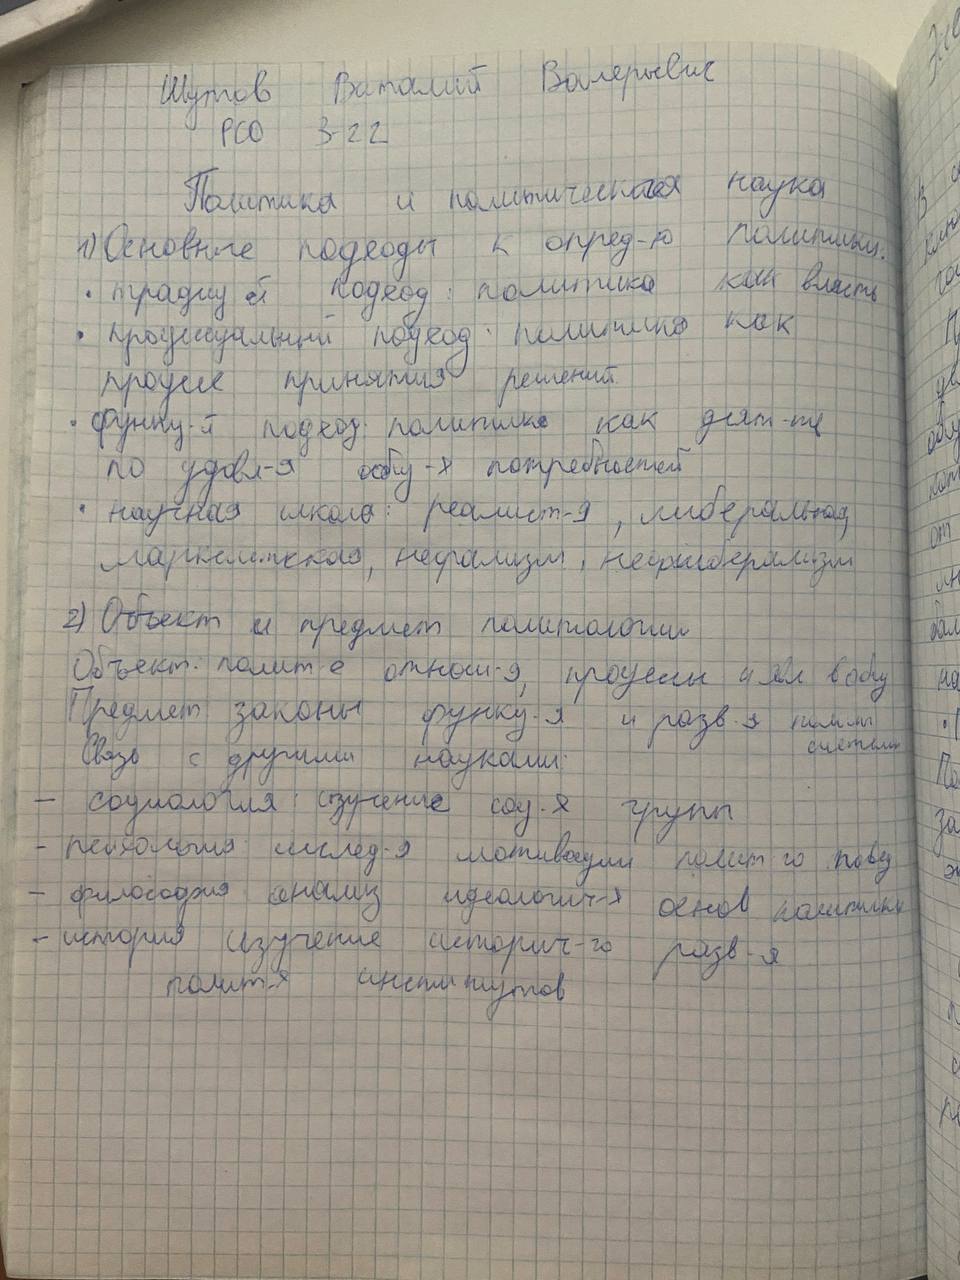 Шутов Виталий Валерьевич
РСО 3-22
Политика и политическая наука
1) Основные подходы к опред-ю политики.
• традиц-й подход: политика как власть
• процессуальный подход: политика как
процесс принятия решений
• функц-й подход: политика как деят-ть
по удовл-я общ-х потребностей
• научная школа: реалист-я, либеральная,
марксистская, неореализм, неолиберализм
2) Объект и предмет политологии
Объект: полит-е отнош-я, процессы и явл в общ
Предмет законы функц-я и разв-я полит
системы
Связь с другими науками:
– социология: изучение соц-х групп
– психология: исслед-я мотивации полит-го повед
– философия анализ идеологич-х основ политики
– история изучение историч-го разв-я
полит-х институтов